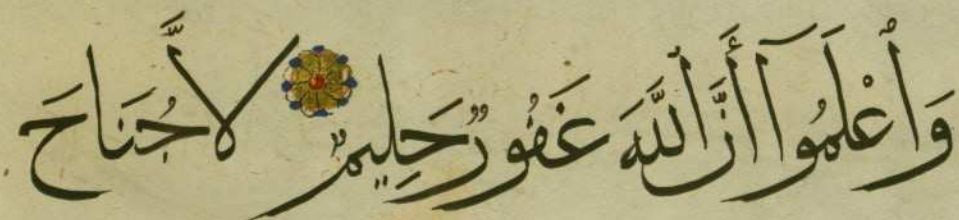 وَٱعْلَمُوٓا۟ أَنَّ ٱللَّهَ غَفُورٌ حَلِيمٌ لَّا جُنَاحَ